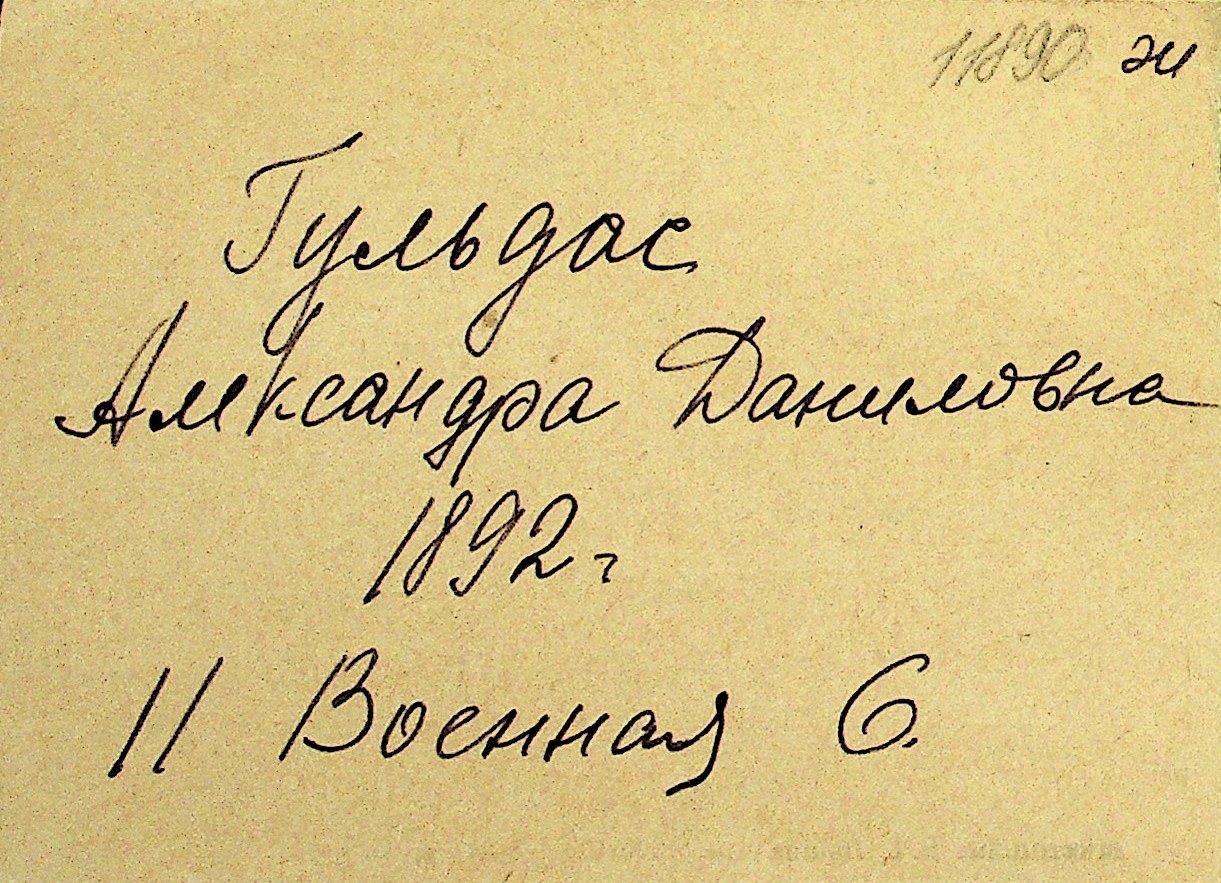 11890 ж
Гульдас
Александра Даниловна
1892 г
11 Военная 6.